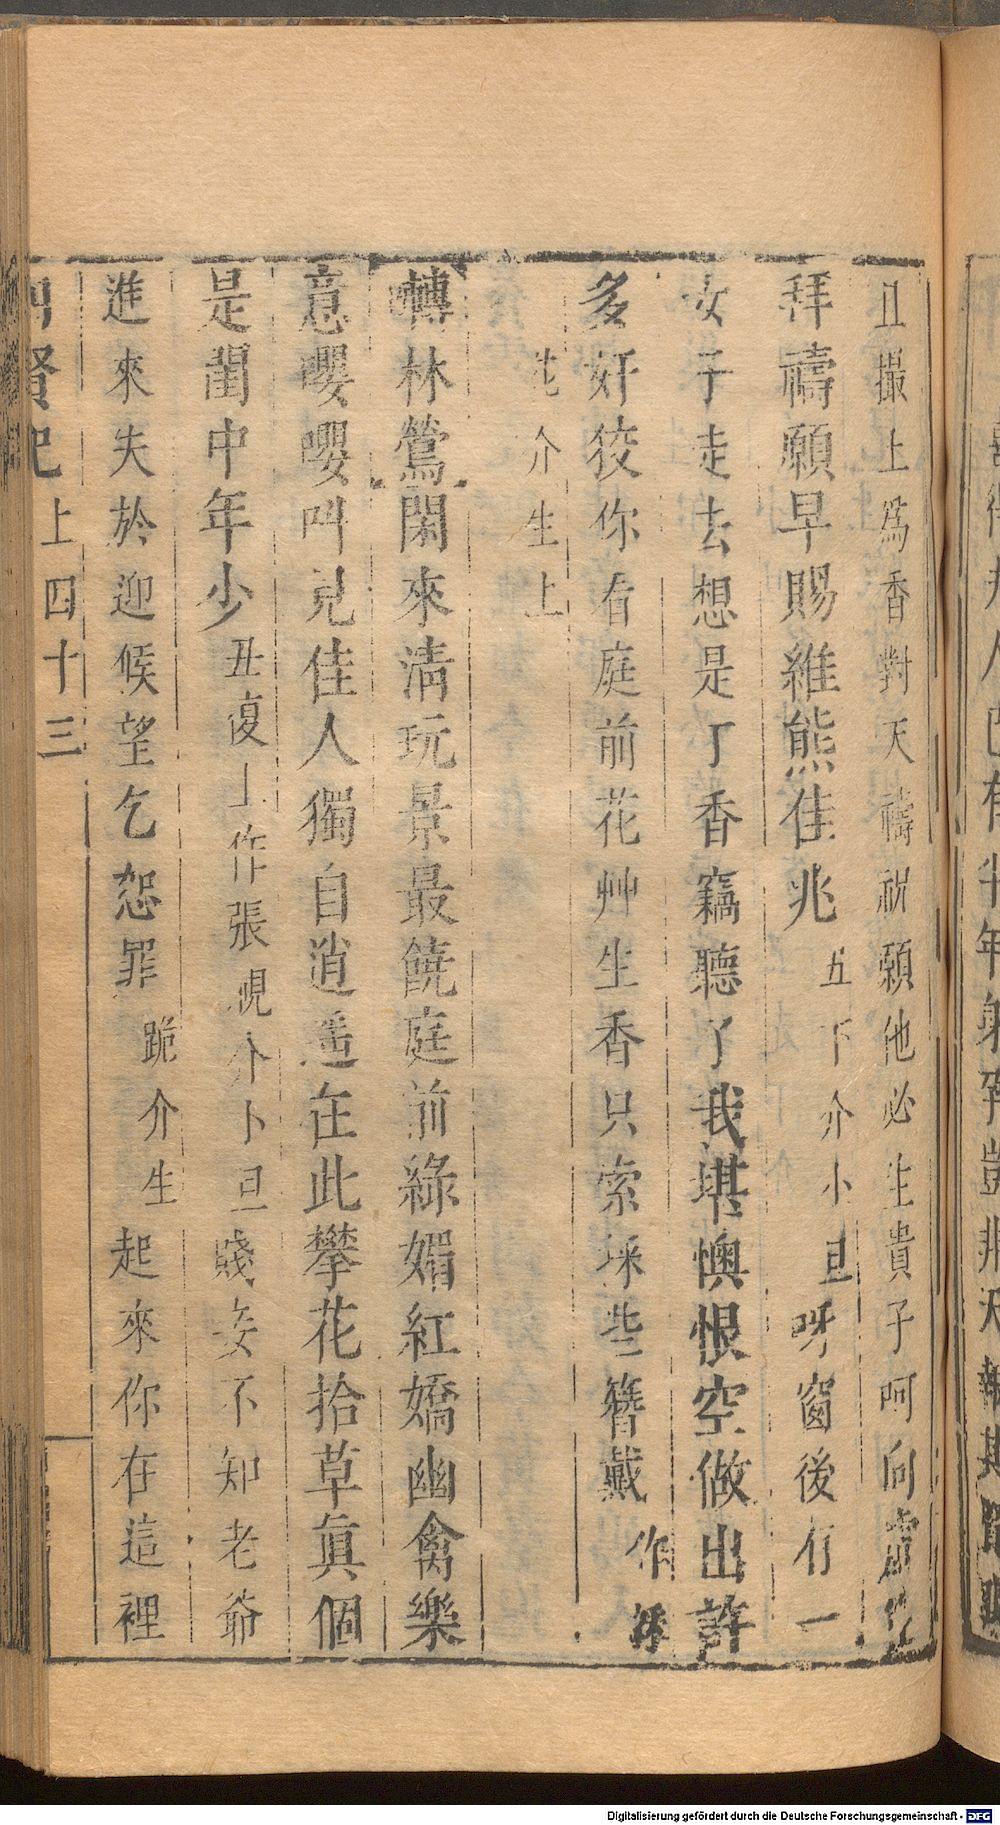 丑撮上爲香對天禱祝願他必生貴子呵向虛
拜禱願早賜維熊佳兆五下介小旦呀窗後有一
女子走去想是丁香竊聽了我堪懊恨空做出許
多奸狡你看庭前花艸生香只索採些簪戴作採
花介生上
囀林鶯閑來淸玩景最饒庭前綠媚紅嬌幽禽樂
意嚶嚶叫見佳人獨自逍遥在此攀花拾草眞個
是閨中年少丑復上作張覷介卜旦賤妾不知老爺
進來失於迎候望乞恕罪跪介生起來你在這裡
四賢記上四十三
Digitalisierung gefördert durch die Deutsche Forschungsgemeinschaft - DFG